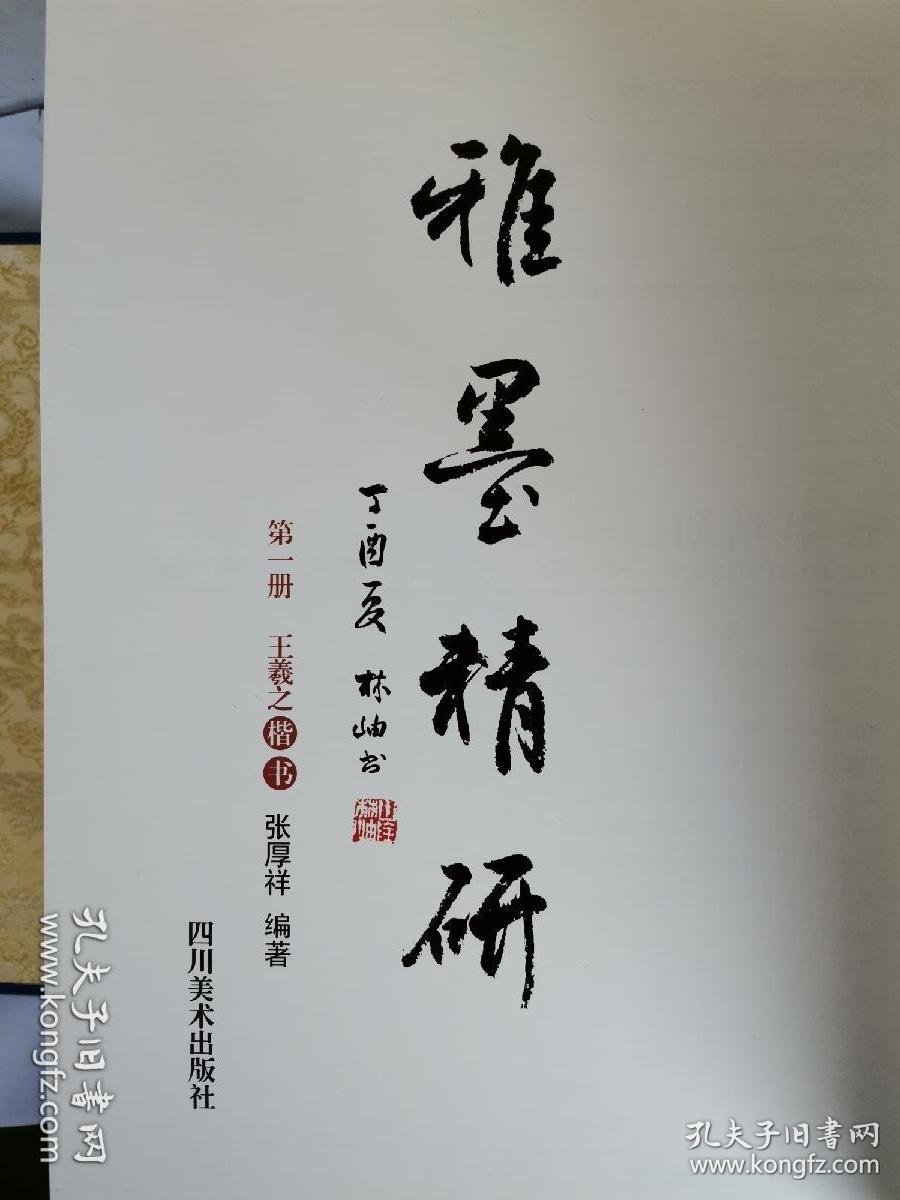 雅墨精研
丁酉夏 林岫书
第一册 王羲之楷书
张厚祥 编著
四川美术出版社
孔夫子旧书网
www.kongfz.com
孔夫子旧书网
www.kongfz.com